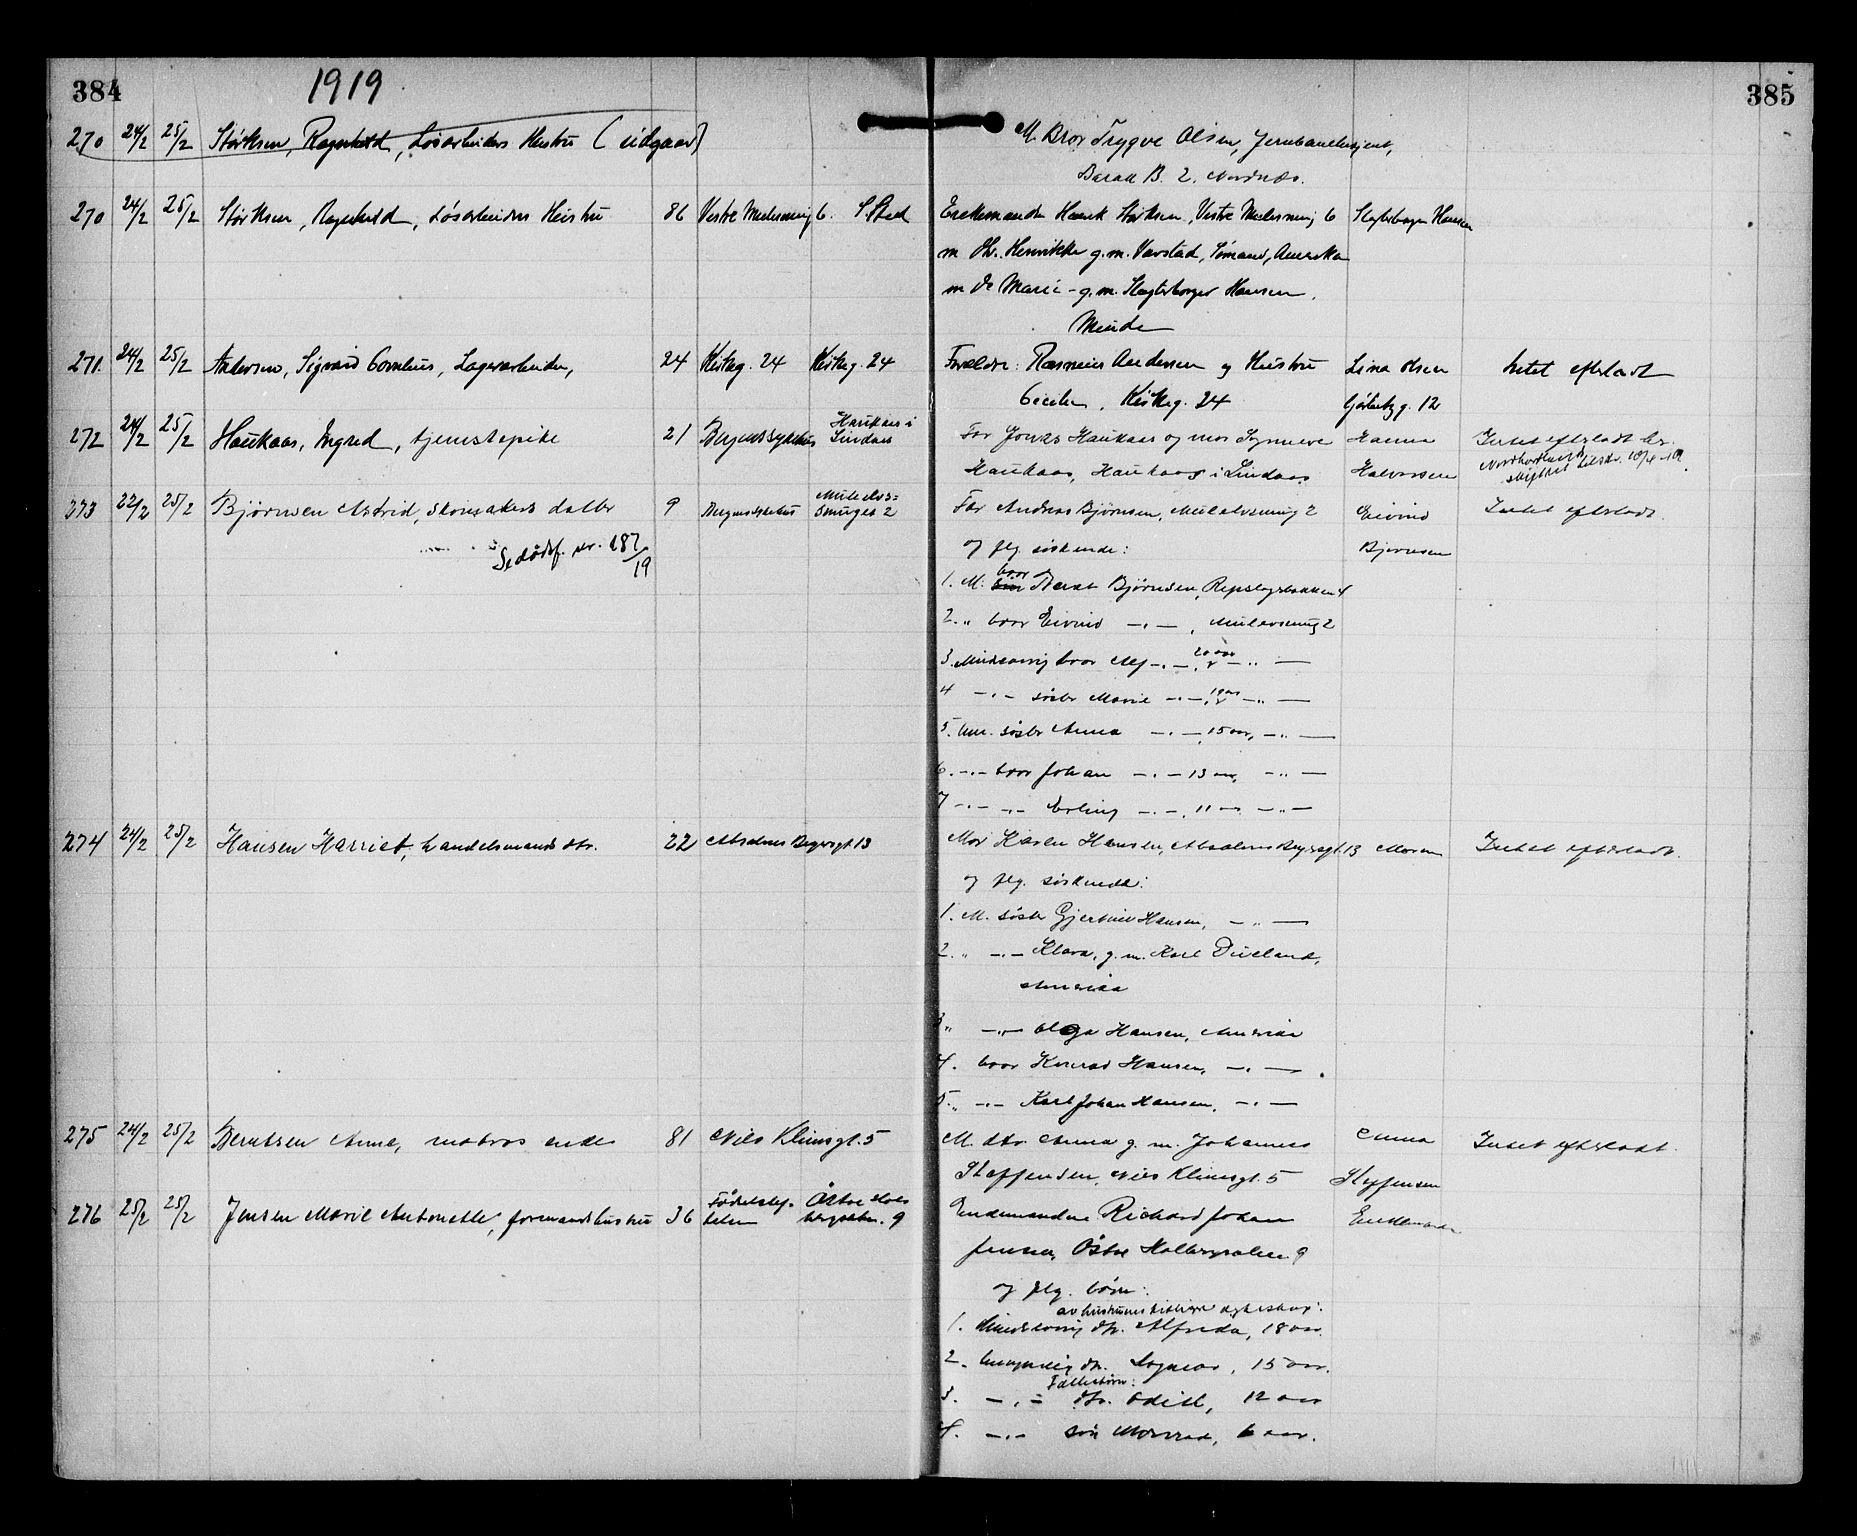 384
1919
385
270 24/2 25/2 Størksen, Ragnhild, Løsarbeiders Hustru (udgaar)
M. Bror Trygve Olsen, Jernbanebetjent,
Barak B. 2. Nordnæs.
270 24/2 25/2 Størksen, Ragnhild, Løsarbeiders Hustru 86 Vestre Muresmug 6. S. Sted Enkemanden Henrik Størksen, Vestre 6 Slagterborger Hansen
m Dtr. Henrikke g.m. Varstad, Sømand, Amerika
m Dtr Marie - g.m. Slagterborger Hansen.
Minde
271. 24/2 25/2 Andersen, Sigvard Cornelius, Lagerarbeider, 24 Kirkeg. 24 Kirkeg. 24 Forældre: Rasmus Andersen og Hustru Lina Olsen Intet efterladt
Cecilie, Kirkeg. 24 g. 12
272 24/2 25/2 Haukaas, Ingrid, tjenestepike 21 Bergens sykehus Haukaas i
Lindaas Far Jonas Haukaas og mor Synneve Hanna Intet efterladt
Haukaas, Haukaas i Lindaas Halvorsen Nordhordland 10/4-19.
273 22/2 25/2 Bjørnsen Astrid, skomakers datter 9 Bergens sykehus Mulelvs=
smuget 2 Far Andreas Bjørnsen, Mulelvsmug 2 Eivind Intet efterladt.
Se dødsf. nr. 187/19
og flg. søskende: Bjørnsen
1. M. bror Bernt Bjørnsen, Repslagerbakken 4
2. " bror Eivind -"-, Mulelvsmug 2
3. Mindreaarig bror Alf -"-, 20 aar -"-
4 -"- søster Marie -"-, 19 aar -"-
5. Um. søster Anna -"-, 15 aar, -"-
6. -"- bror Johan -"- 13 aar, -"-
7 -"- -"- Erling -"-, 11 aar -"-
274 24/2 25/2 Hansen Harriet, handelsmands dtr. 22 Absalons Beyersgt. 13 Mor Karen Hansen, Absalons Beyersgt. 13 Moren Intet efterladt.
og flg. søskende:
1. M. søster Gjertine Hansen, -"-
2. " -"- Klara, g.m. Karl Dueland,
Amerika
3 " -"- Olga Hansen, Amerika
4. bror Konrad Hansen, -"-
5. " -"- Karl Johan Hansen, -"-
275 24/2 25/2 Berntsen Anne, matros enke 81 Niels Klimsgt. 5 M. dtr. Anna g.m. Johannes Emma Intet efterladt.
Steffensen, Niels Klimsgt. 5 Steffensen
276 25/2 25/2 Jensen Marie Antonette, formands hustru 36 Fødselsstif-
telsen Østre Hol-
bergsalm. 9 Enkemanden Richard Johan Enkemanden
Jensen, Østre Holbergsalm. 9
og flg. børn:
av hustruens tidligere egteskap:
1. Mindreaarig dtr. Alfreda, 18 aar.
2. Umyndig dtr. Dagmar, 15 aar.
Fællesbørn:
3. -"- dtr. Edith, 12 aar
4. -"- søn 6 aar.